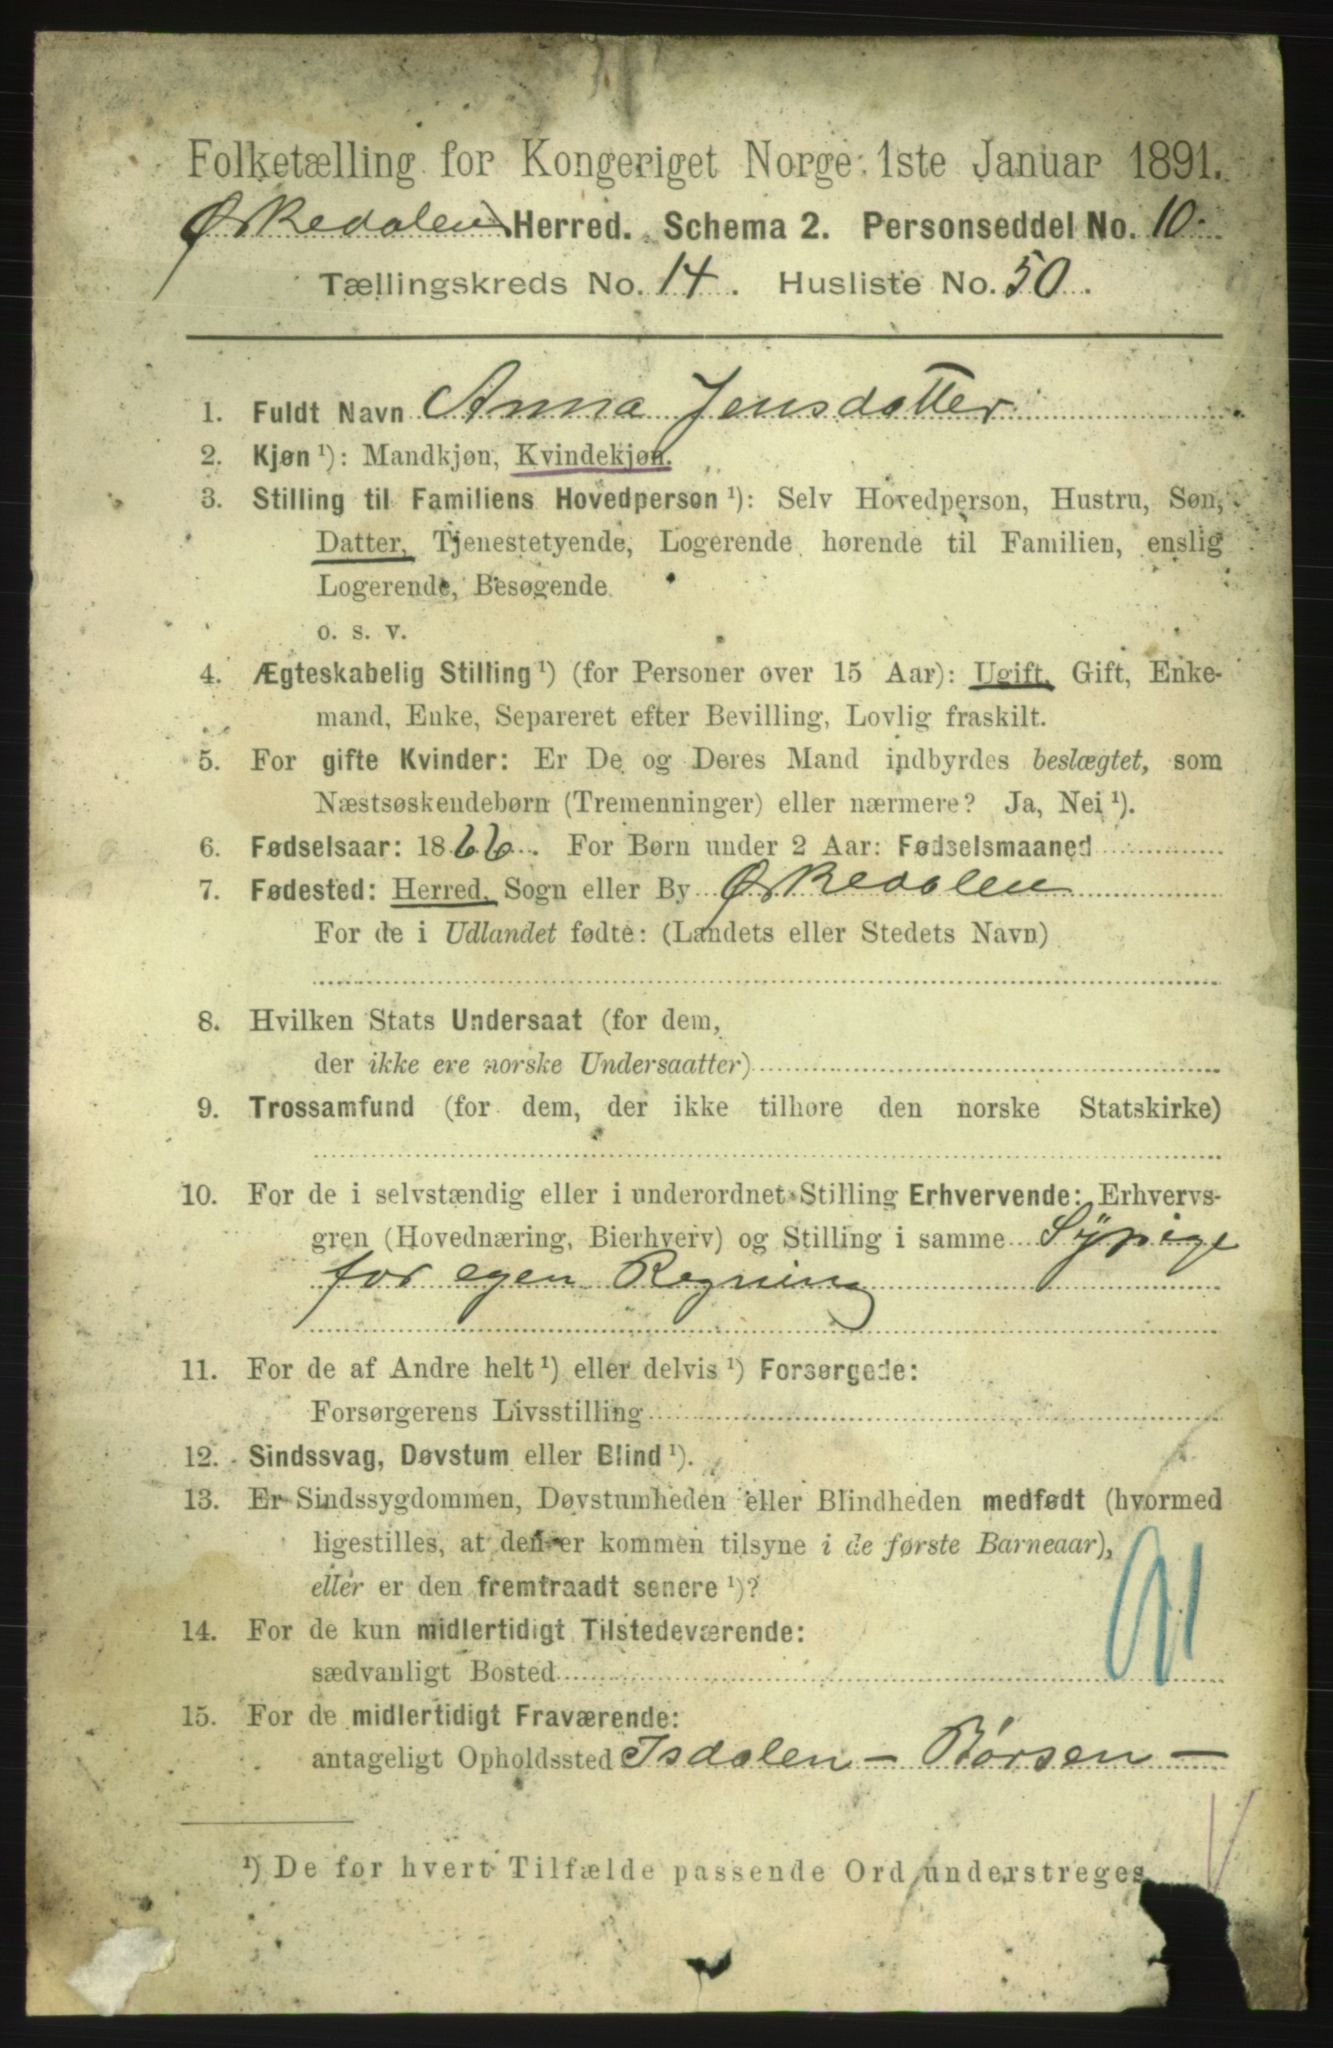 Folketælling for Kongeriget Norge 1ste Januar 1891.
Ørkedalen Herred. Schema 2. Personseddel No. 10.
Tællingskreds No. 14. Husliste No. 50.
1. Fuldt Navn Anna Jensdatter
2. Kjøn ¹): Mandkjøn, Kvindekjøn.
3. Stilling til Familiens Hovedperson ¹): Selv Hovedperson, Hustru, Søn,
Datter, Tjenestetyende, Logerende hørende til Familien, enslig
Logerende, Besøgende
o. s. v.
4. Ægteskabelig Stilling ¹) (for Personer over 15 Aar): Ugift, Gift, Enke-
mand, Enke, Separeret efter Bevilling, Lovlig fraskilt.
5. For gifte Kvinder: Er De og Deres Mand indbyrdes beslægtet, som
Næstsøskendebørn (Tremenninger) eller nærmere? Ja, Nei ¹).
6. Fødselsaar: 1866. For Børn under 2 Aar: Fødselsmaaned
7. Fødested: Herred, Sogn eller By Ørkedalen
For de i Udlandet fødte: (Landets eller Stedets Navn)
8. Hvilken Stats Undersaat (for dem,
der ikke ere norske Undersaatter)
9. Trossamfund (for dem, der ikke tilhøre den norske Statskirke)
10. For de i selvstændig eller i underordnet Stilling Erhvervende: Erhvervs-
gren (Hovednæring, Bierhverv) og Stilling i samme Sÿpige
for egen Regning
11. For de af Andre helt ¹) eller delvis ¹) Forsørgede:
Forsørgerens Livsstilling
12. Sindssvag, Døvstum eller Blind ¹).
13. Er Sindssygdommen, Døvstumheden eller Blindheden medfødt (hvormed
ligestilles, at den er kommen tilsyne i de første Barneaar),
eller er den fremtraadt senere ¹)?
14. For de kun midlertidigt Tilstedeværende:
sædvanligt Bosted
91
15. For de midlertidigt Fraværende:
antageligt Opholdssted Isdalen - Børsen -
¹) De for hvert Tilfælde passende Ord understreges